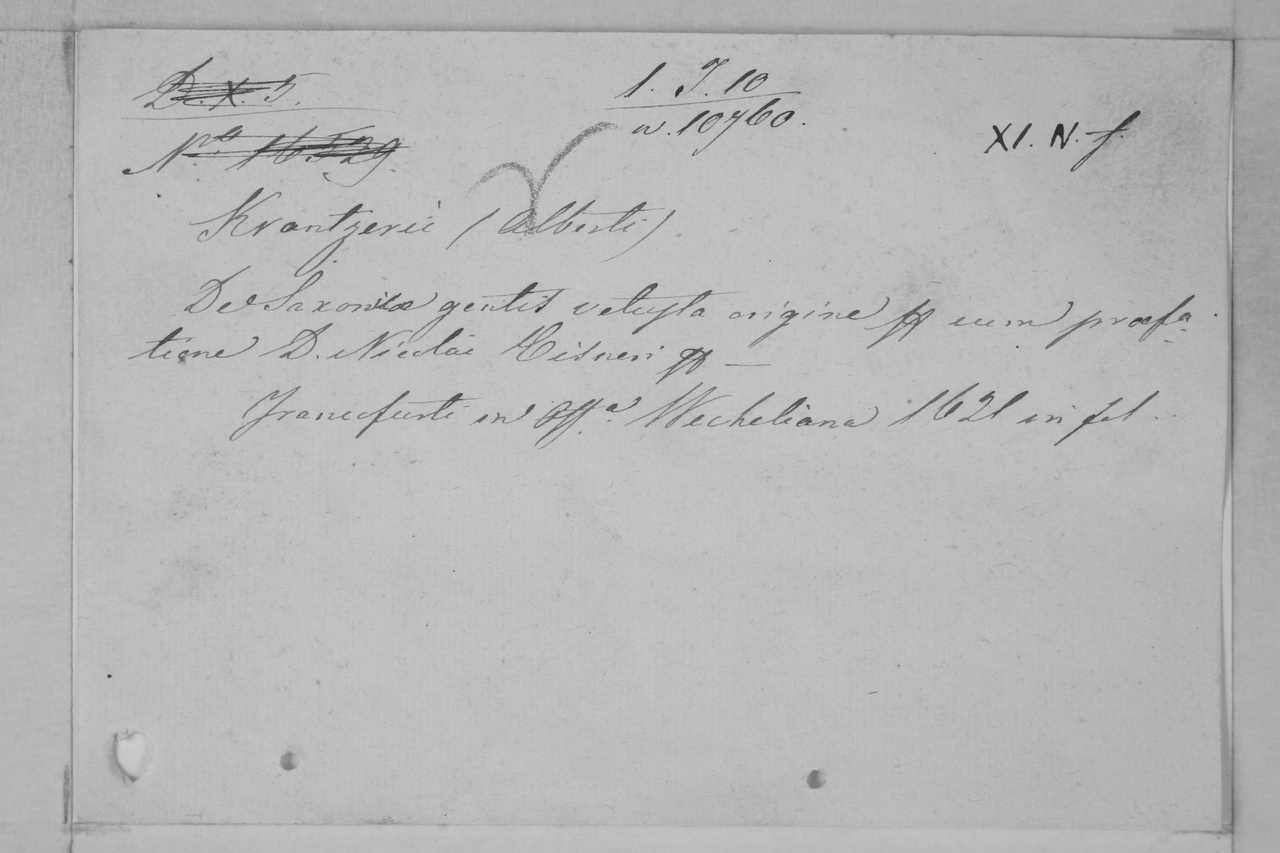 D. X. 5.
1. J. 10
a. 10760.
XI. N. f.
N.ro 16.529.
Krantzerii (Alberti).
De Saxonicæ gentis vetusta origine & cum præfa-
tione D. Nicolai Cisneri & —
Francofurti in Off.a Wecheliana 1621 in fol.